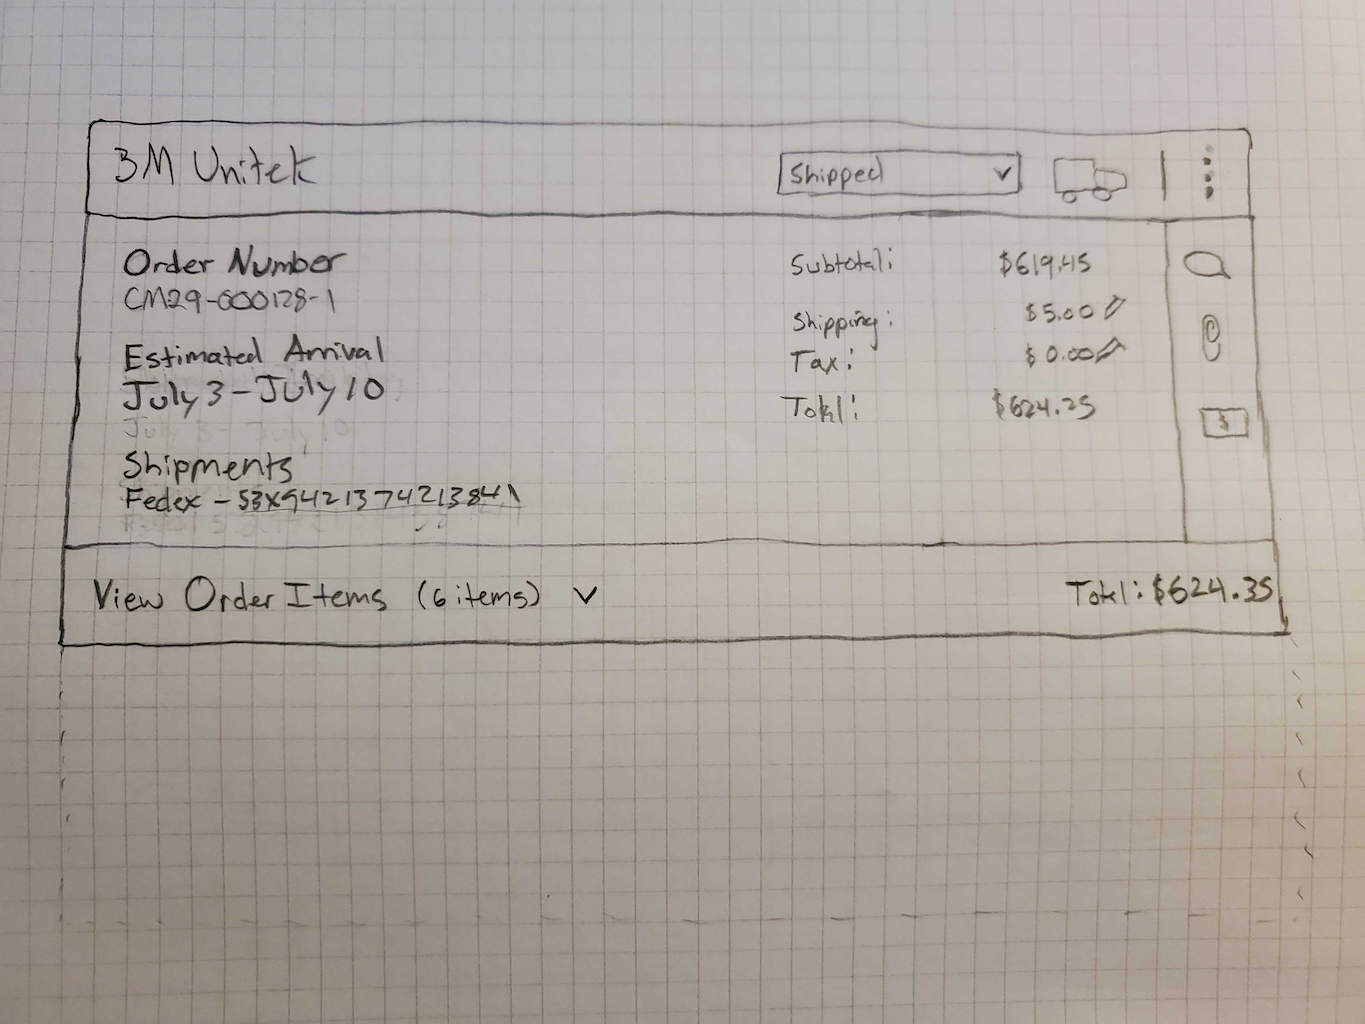 3M Unitek
Shipped
Order Number
CM29-000128-1
Estimated Arrival
July 3 - July 10
July 3 - July 10
Shipments
Fedex - 53X9421374213841
Subtotal: $619.45
Shipping: $5.00
Tax: $0.00
Total: $624.25
$
View Order Items (6 items)
Total: $624.35